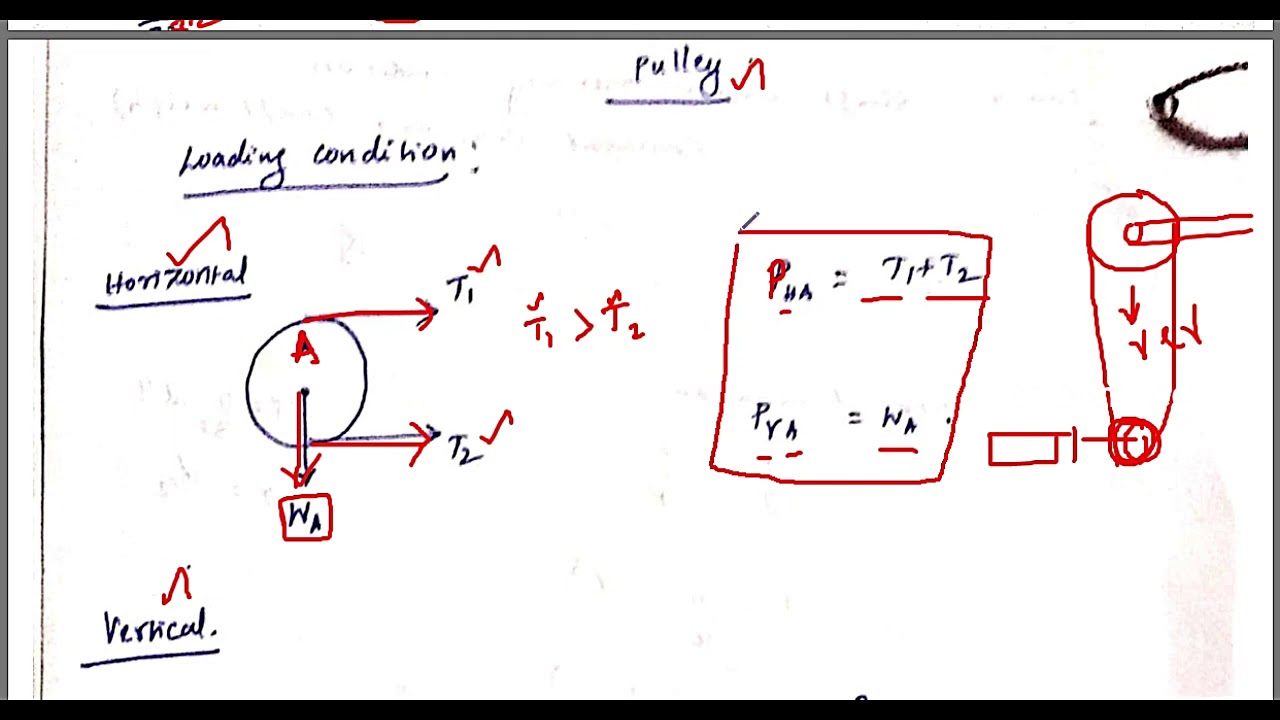 Pulley
Loading condition:
Horizontal
T₁
T₁ > T₂
A
T₂
W_A
P_HA = T₁ + T₂
P_VA = W_A.
Vertical.